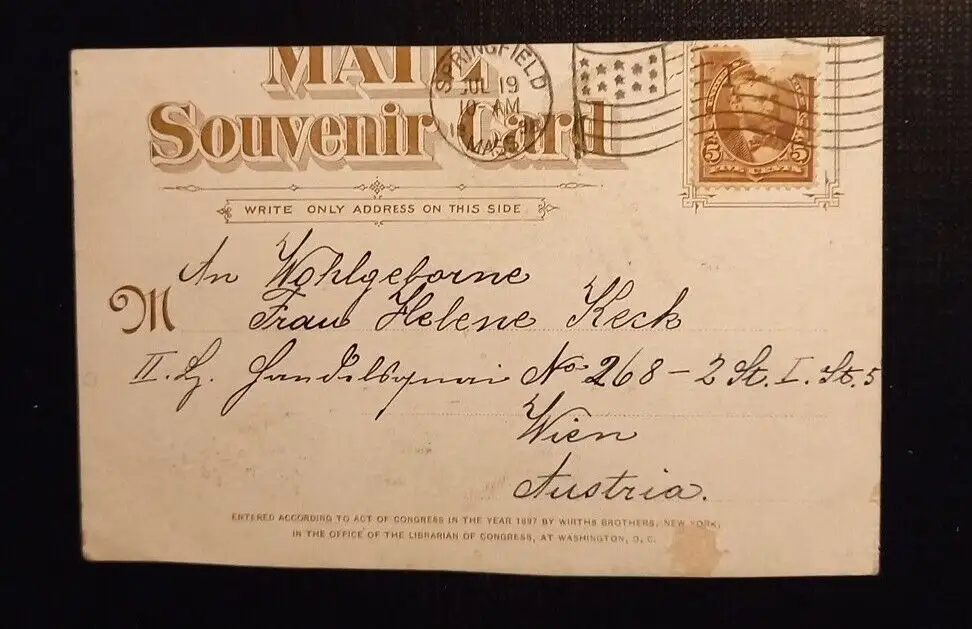 Souvenir Card
SPRINGFIELD
JUL 19
10-AM
MASS
5 5
WRITE ONLY ADDRESS ON THIS SIDE
An Wohlgeborne
M Frau Helene Keck
II. Bz. Handelsquai No 268 - 2 St. I. St. 5
Wien
Austria.
ENTERED ACCORDING TO ACT OF CONGRESS IN THE YEAR 1897 BY WIRTHS BROTHERS, NEW YORK,
IN THE OFFICE OF THE LIBRARIAN OF CONGRESS, AT WASHINGTON, D. C.